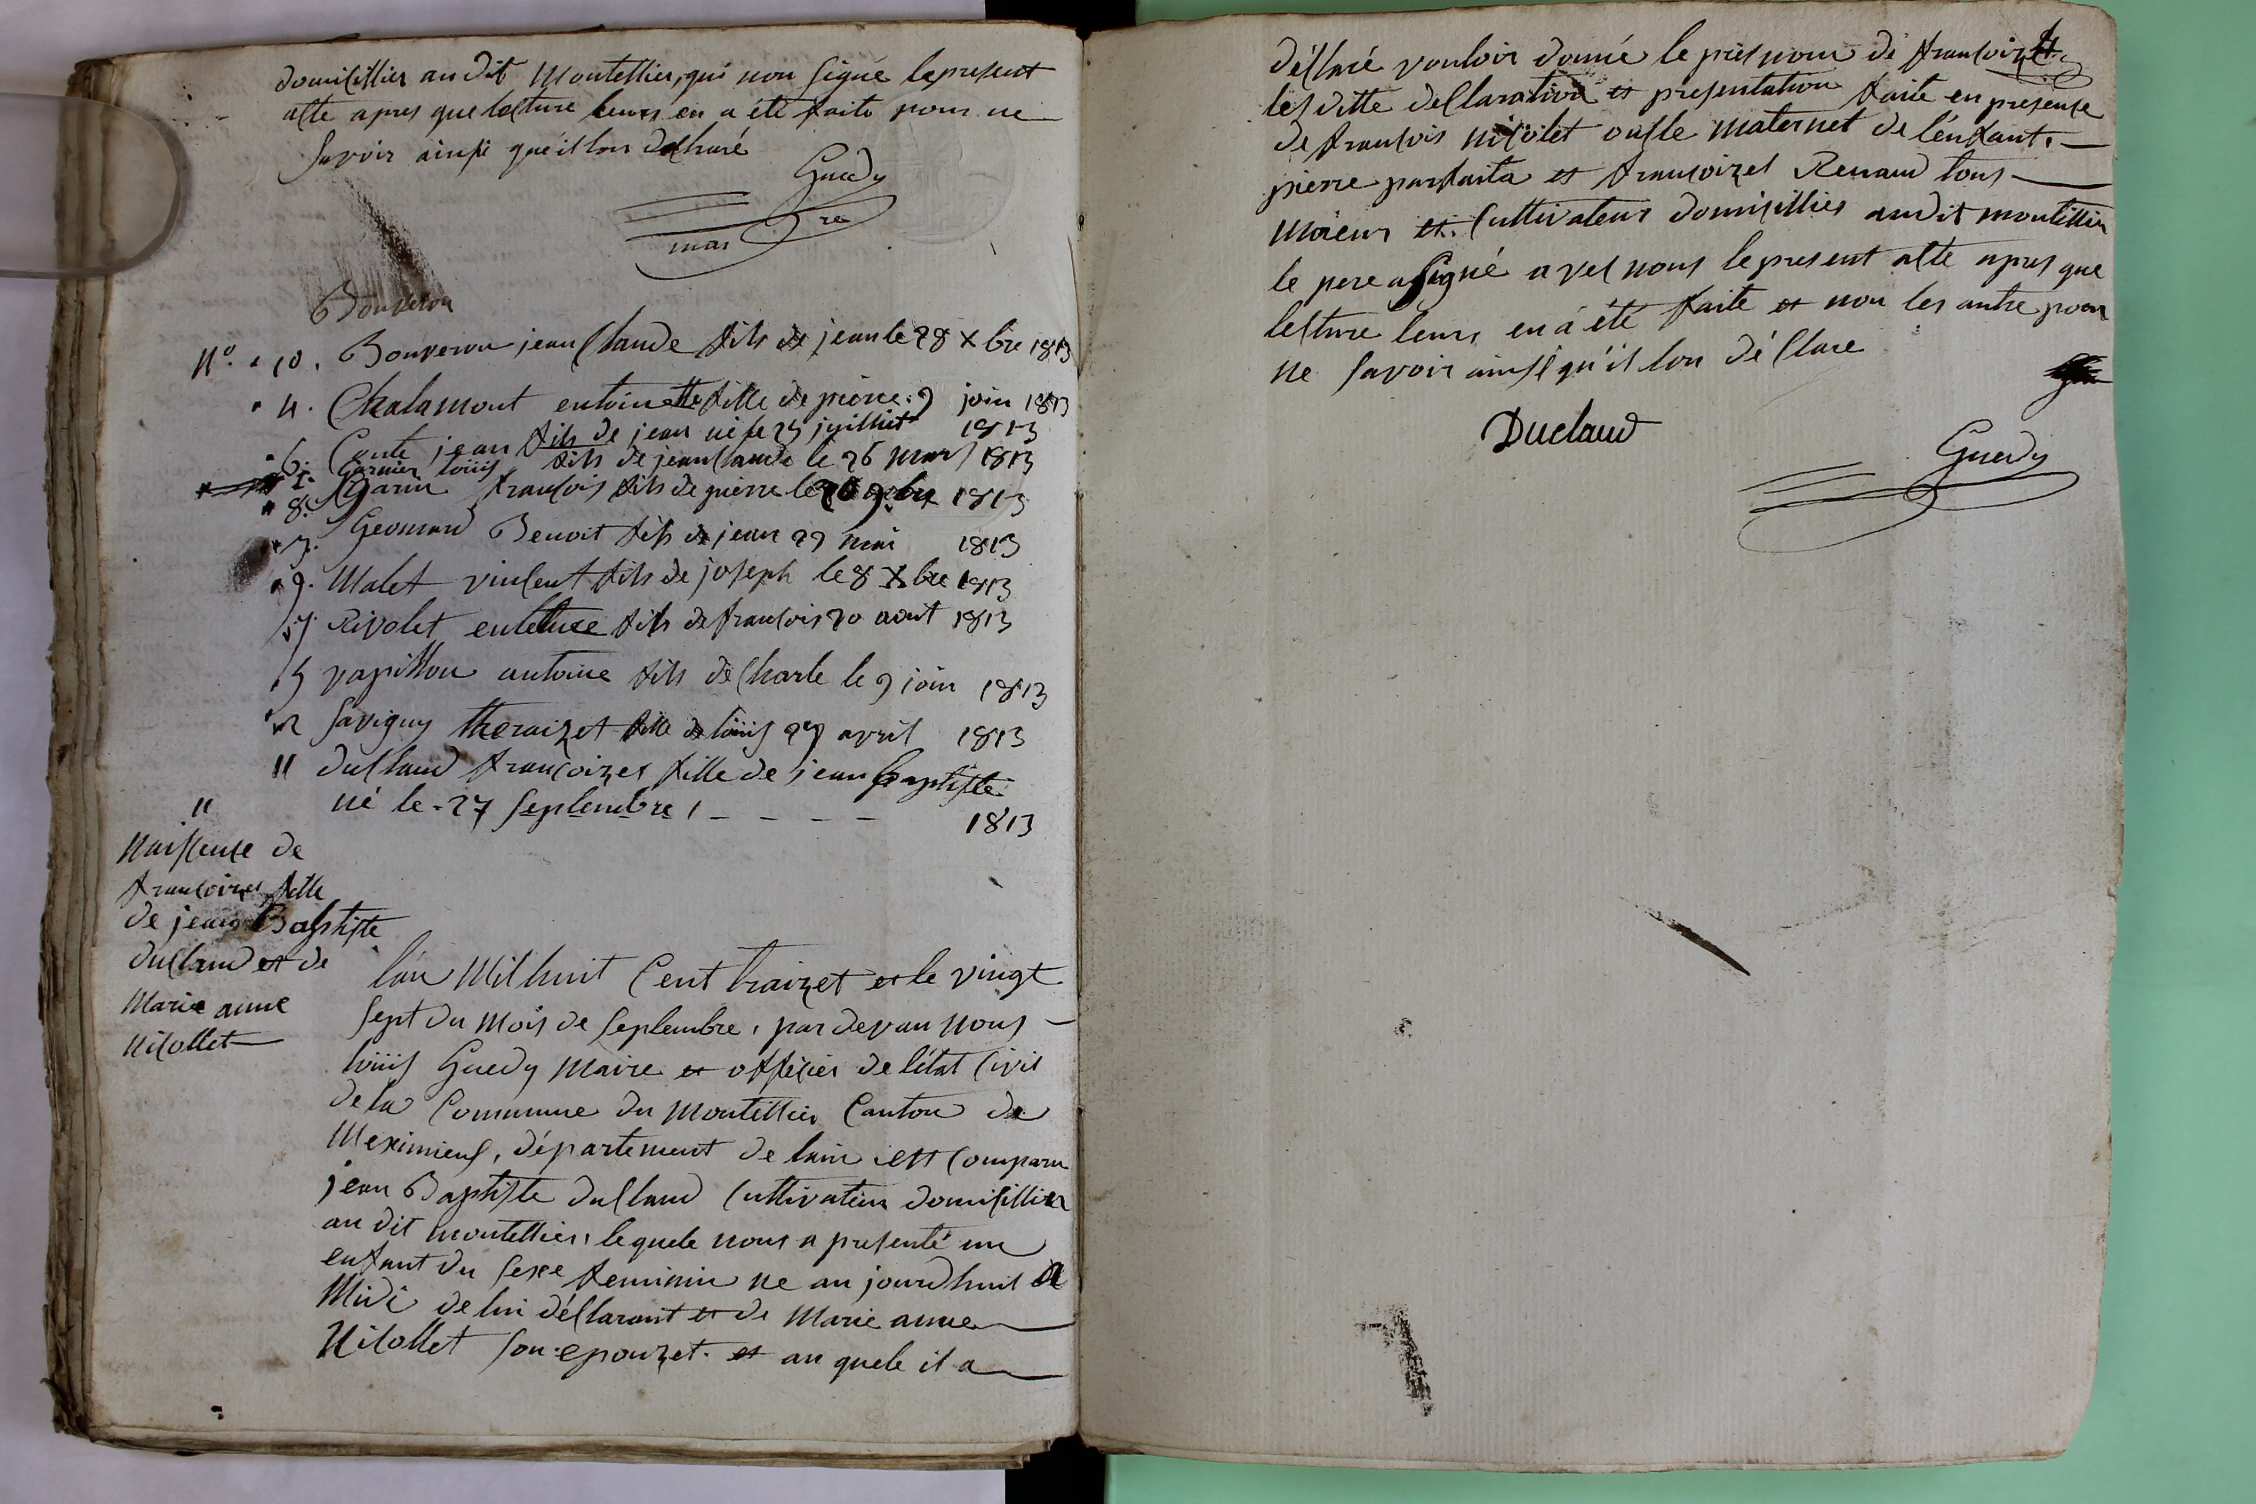 domicillier au dit Montellier, qui non signé le present
acte apres que lecture leurs en a été faite pour ne
savoir ainsi queillon declaré
Guedy
mai re
Bouveron
N.º 10. Bouveron jean Claude fils de jean le 28 Xbre 1813
4. Chalamont entoinette fille de pierre. 9 join 1813
6. Conte jean fils de jean né le 25 juilliet 1813
1. Garnier loüis fils de jean Claude le 26 mars 1813
8. Garin francois fils de pierre le 20 9.bre 1813
3. Geomard Benoit fils de jean 29 mai 1813
9. Malet vincent fils de joseph le 8 Xbre 1813
7 Rivolet fils de francois 20 aout 1813
5 papillon antoine fils de Charle le 9 join 1813
2 Savigny theraizet fille de loüis 27 avril 1813
11 duclaud francoizes fille de jean Baptiste
né le 27 septembre, - - - - 1813
11
Naissense de
francoizes fille
de jean Baptiste
duclaud et de
Marie anne
Nicollet
lán Mil huit Cent traizet et le vingt
sept du Mois de septembre, par devan nous
loüis Guedy Maire et officier de létat Civil
de la Commune du Montellier Canton de
Meximieux, département de lain est Comparu
jean Baptiste duclaud Cultivateur domicillier
au dit montellier, le quele nous a presenté un
enfant du sexe feminin ne au jourdhuit a
Midi de lui déclarant et de Marie anne
Nicollet son epouzet. et au quele il a
déclaré vouloir donné le présnom de francoizet
les ditte declaration et presentation faite en presense
de francois nicolet oncle maternet de lénfant.
pierre parfaita et francoizes Renaud tous
Maieur et Cultivateur domicillier au dit montellier
le pere a signé avec nous le present acte apres que
lecture leurs en á été faite et non les autre pour
ne savoir ainsi qu'il lon déclare
Duclaud
Guedy